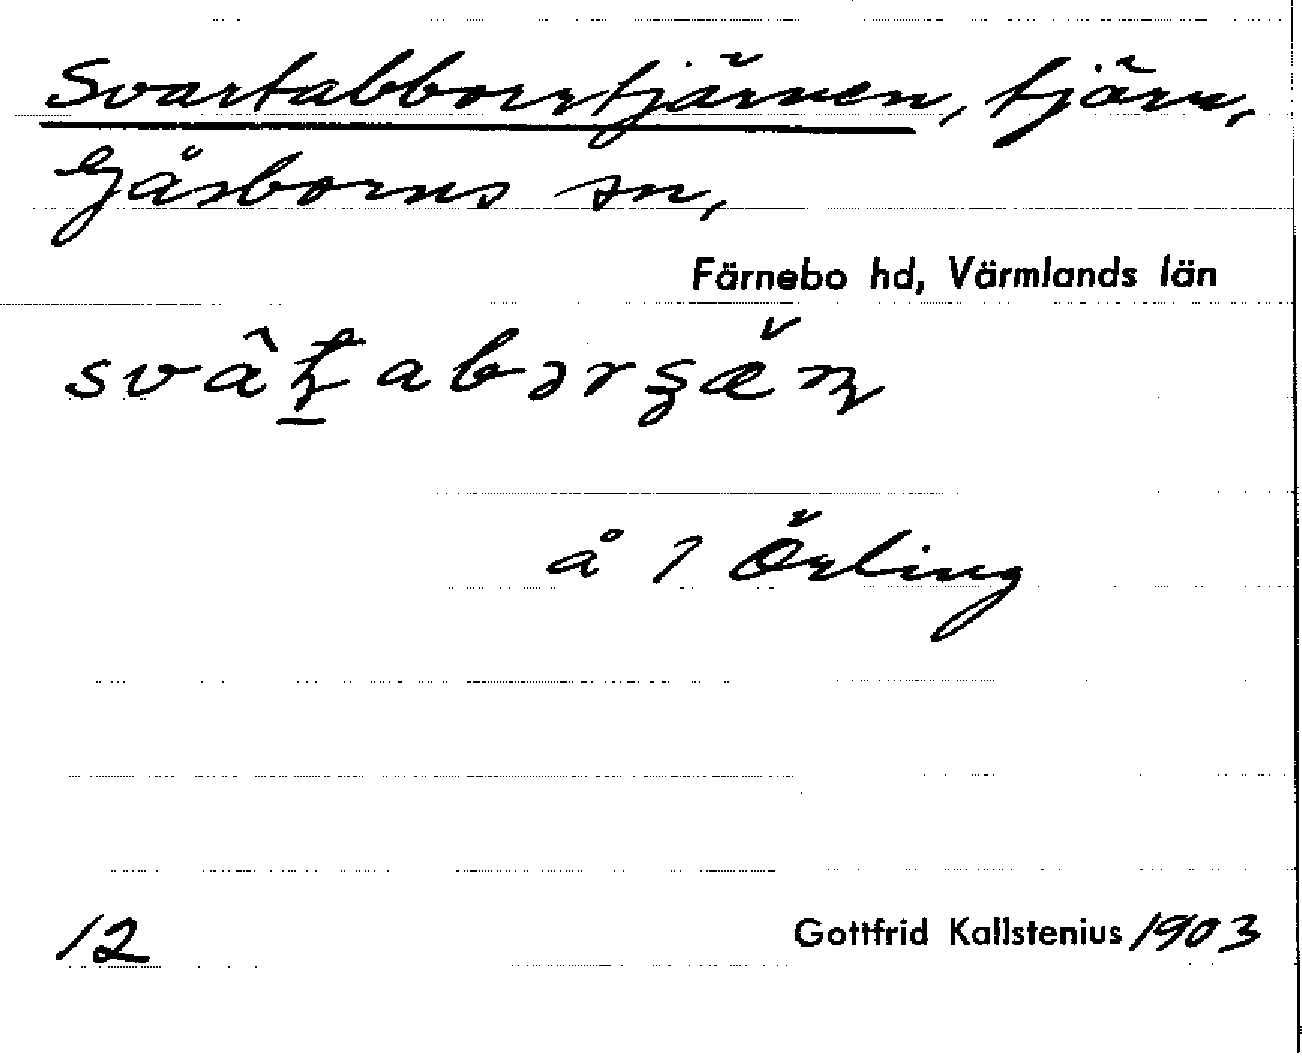 Svartabborrtjärnen, tjärn,
Gåsborns sn,
Färnebo hd, Värmlands län
å 1 Örling
12
Gottfrid Kallstenius 1903